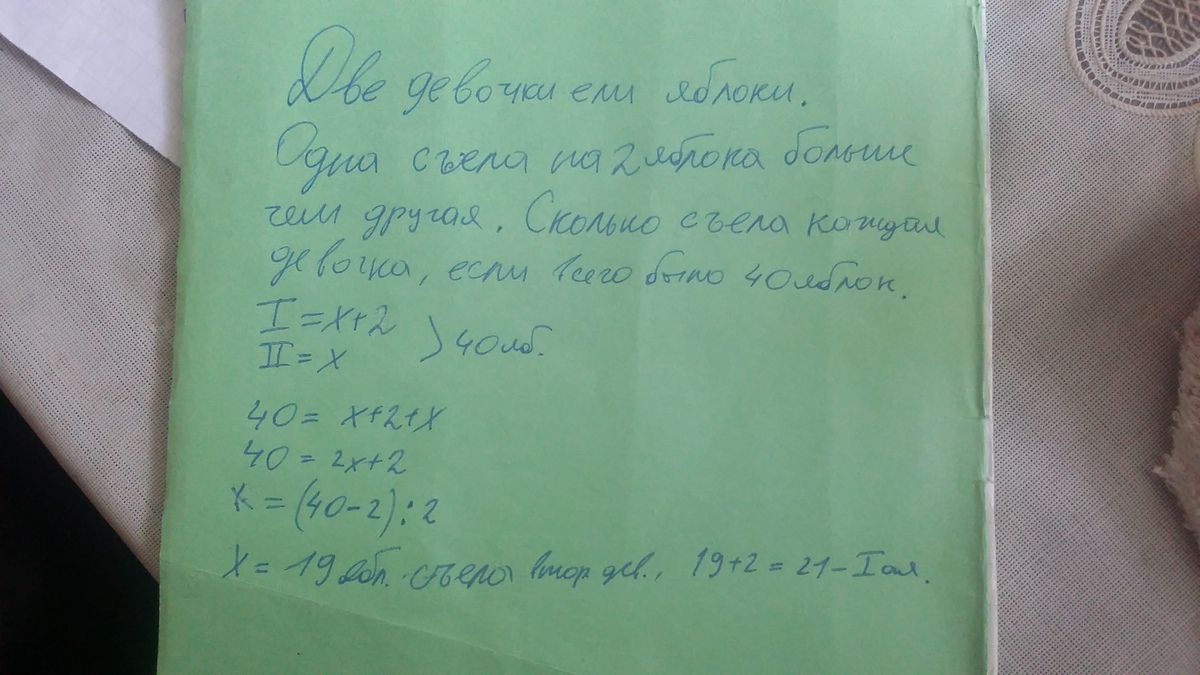 Две девочки ели яблоки.
Одна съела на 2 яблока больше
чем другая. Сколько съела каждая
девочка, если всего было 40 яблок.
I = x+2
II = x
> 40 яб.
40 = x+2+x
40 = 2x+2
x = (40-2):2
x = 19 ябл. съела втор дев., 19+2 = 21 - I ая.